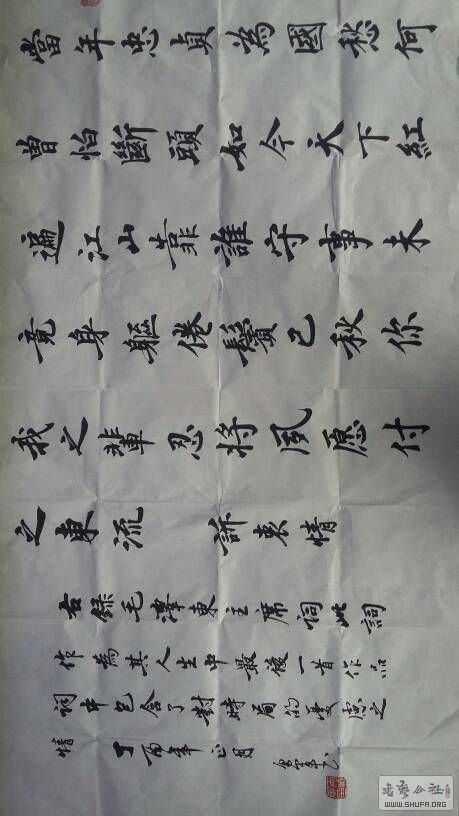 當年忠貞為國愁何
曾怕斷頭如今天下紅
遍江山靠誰守事未
竟身軀倦鬢已秋你
我之輩忍將夙愿付
之東流 訴衷情
右錄毛澤東主席詞此詞
作為其人生中最後一首作品
詞中包含了對時局的憂慮之
情 丁酉年正月
書藝公社
WWW.SHUFA.ORG